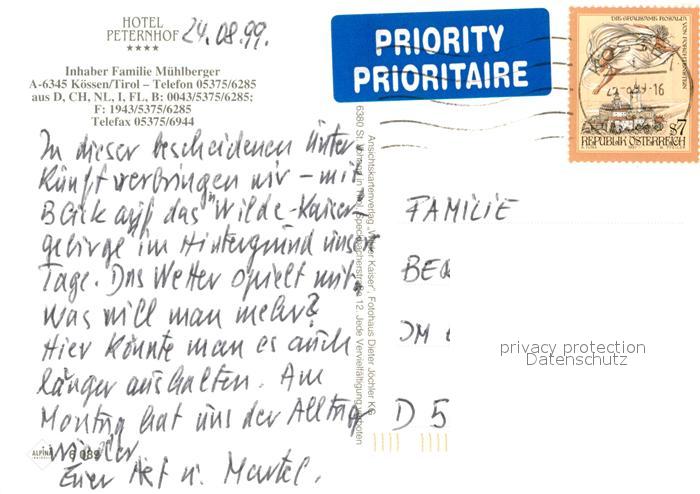 HOTEL
PETERNHOF
★★★★
24.08.99.
Inhaber Familie Mühlberger
A-6345 Kössen/Tirol – Telefon 05375/6285
aus D, CH, NL, I, FL, B: 0043/5375/6285;
F: 1943/5375/6285
Telefax 05375/6944
In dieser bescheidenen Unter
kunft verbringen wir – mit
Blick auf das "Wilde-Kaiser-
gebirge im Hintergrund unser
Tage. Das Wetter spielt mit,
was will man mehr?
Hier könnte man es auch
länger aushalten. Am
Montag hat uns der Alltag
wieder
Euer u.
ALPINA
6 089
Ansichtskartenverlag „Wilder Kaiser", Fotohaus Dieter Jöchler KG
6380 St. Johann in Tirol, Speckbacherstraße 12. Jede Vervielfältigung verboten
PRIORITY
PRIORITAIRE
DIE GRAUSAME ROSALIA
16
s7
REPUBLIK ÖSTERREICH
FAMILIE
BE
IM
D 5
privacy protection
Datenschutz